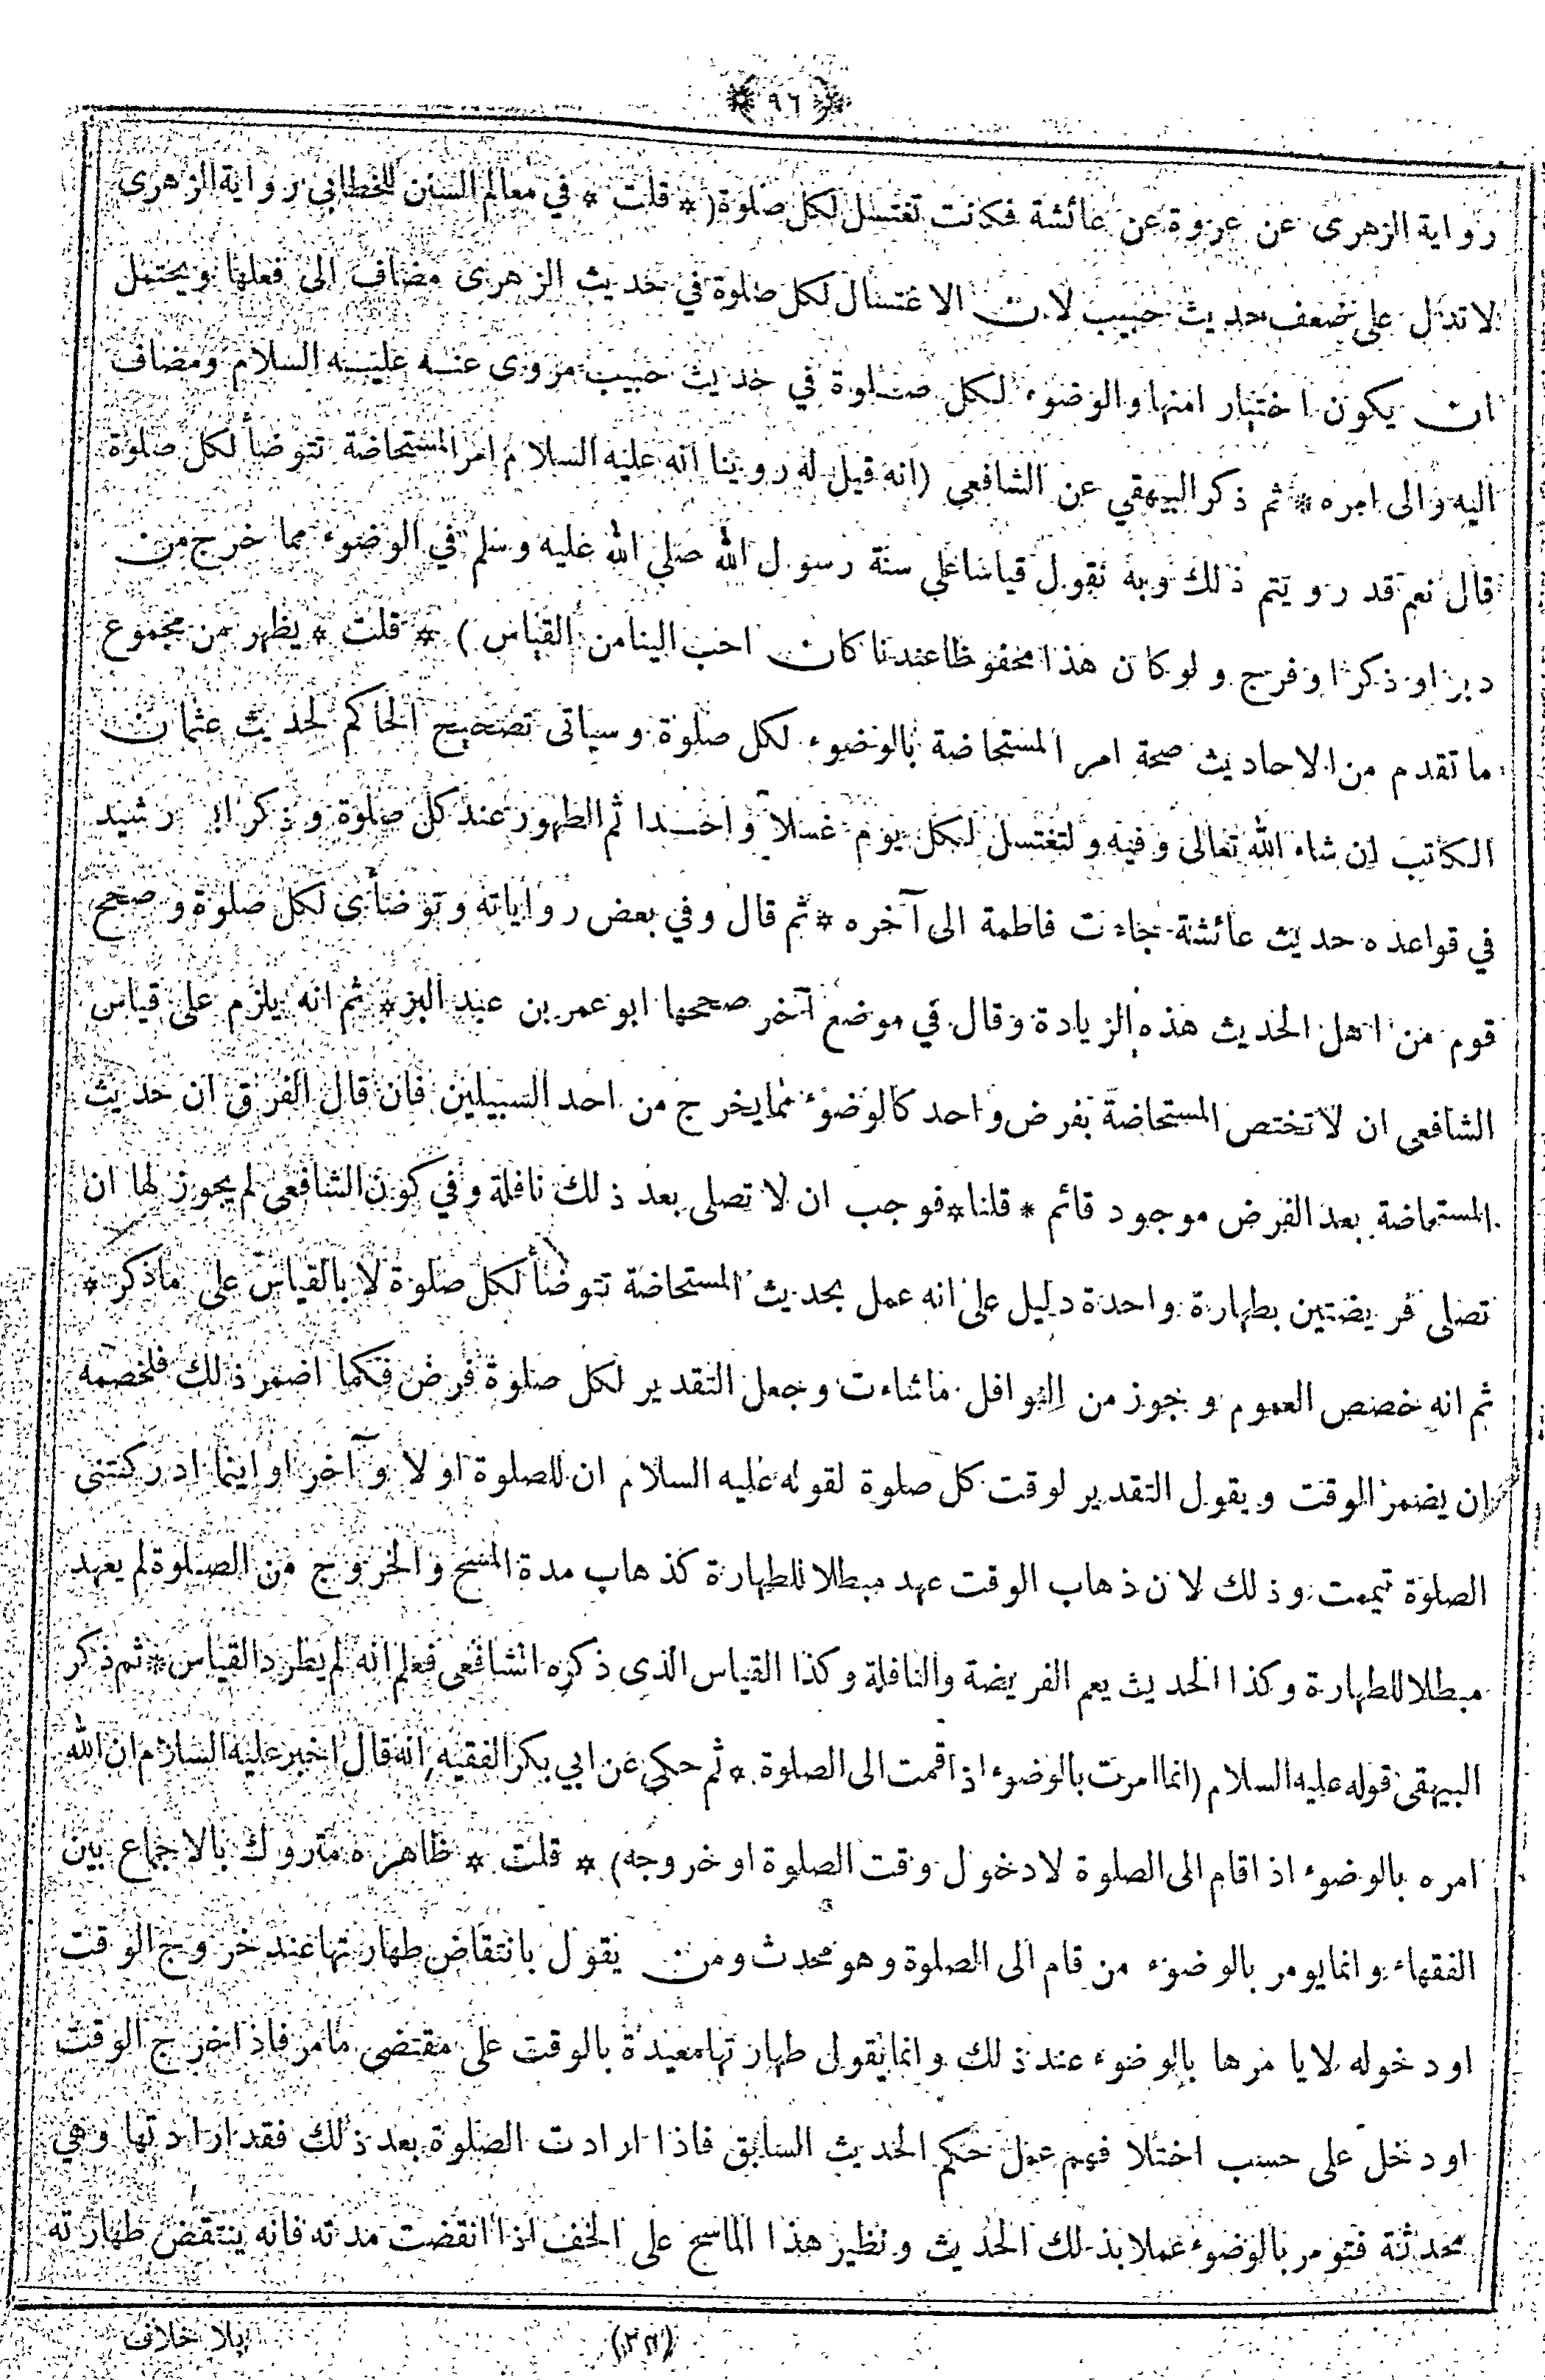 ﴿ ٩٦ ﴾
رواية الزهرى عن عروة عن عائشة فكانت تغتسل لكل صلوة ( * قلت * في معالم السنن للخطابي رواية الزهرى
لا تدل على ضعف حديث حبيب لان الاغتسال لكل صلوة في حديث الزهرى مضاف الى فعلها ويحتمل
ان يكون اختيار امنها والوضوء لكل صلوة في حديث حبيب مروى عنه عليه السلام ومضاف
اليه والى امره * ثم ذكر البيهقي عن الشافعي (انه قيل له روينا انه عليه السلام امر المستحاضة تتوضأ لكل صلوة
قال نعم قد رويتم ذلك وبه نقول قياسا على سنة رسول الله صلى الله عليه وسلم في الوضوء مما خرج من
دبر او ذكر او فرج ولو كان هذا محفوظا عندنا كان احب الينا من القياس ) * قلت * يظهر من مجموع
ما تقدم من الاحاديث صحة امر المستحاضة بالوضوء لكل صلوة وسياتى تصحيح الحاكم لحديث عثمان
الكاتب ان شاء الله تعالى وفيه ولتغتسل لكل يوم غسلا واحدا ثم الطهور عند كل صلوة وذكر ابن رشيد
في قواعده حديث عائشة جاءت فاطمة الى آخره * ثم قال وفي بعض رواياته وتوضأى لكل صلوة وصحح
قوم من اهل الحديث هذه الزيادة وقال في موضع آخر صححها ابو عمر بن عبد البر * ثم انه يلزم على قياس
الشافعى ان لا تختص المستحاضة بفرض واحد كالوضوء مما يخرج من احد السبيلين فان قال الفرق ان حديث
المستحاضة بعد الفرض موجود قائم * قلنا * فوجب ان لا تصلى بعد ذلك نافلة وفي كون الشافعى لم يجوز لها ان
تصلى فريضتين بطهارة واحدة دليل على انه عمل بحديث المستحاضة تتوضأ لكل صلوة لا بالقياس على ما ذكر *
ثم انه خصص العموم وجوز من النوافل ما شاءت وجعل التقدير لكل صلوة فرض فكما اضمر ذلك فلخصمه
ان يضمر الوقت ويقول التقدير لوقت كل صلوة لقوله عليه السلام ان للصلوة اولا وآخر او اينما ادركتنى
الصلوة تيممت وذلك لان ذهاب الوقت عهد مبطلا للطهارة كذهاب مدة المسح والخروج من الصلوة لم يعهد
مبطلا للطهارة وكذا الحديث يعم الفريضة والنافلة وكذا القياس الذى ذكره الشافعى فعلم انه لم يطرد القياس * ثم ذكر
البيهقى قوله عليه السلام (انما امرت بالوضوء اذا قمت الى الصلوة * ثم حكى عن ابي بكر الفقيه انه قال اخبر عليه السلام ان الله
امره بالوضوء اذا قام الى الصلوة لا دخول وقت الصلوة او خروجه) * قلت * ظاهره متروك بالاجماع بين
الفقهاء وانما يومر بالوضوء من قام الى الصلوة وهو محدث ومن يقول بانتقاض طهارتها عند خروج الوقت
او دخوله لا يا مرها بالوضوء عند ذلك وانما يقول طهارتها مقيدة بالوقت على مقتضى ما مر فاذا خرج الوقت
او دخل على حسب اختلا فهم عمل حكم الحديث السابق فاذا ارادت الصلوة بعد ذلك فقد ارادتها وهي
محدثة فتومر بالوضوء عملا بذلك الحديث ونظير هذا الماسح على الخف اذا انقضت مدته فانه ينتقض طهارته
بلا خلاف